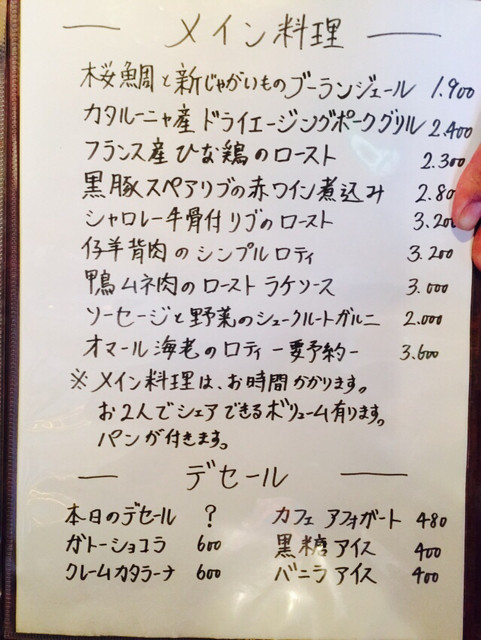 メイン料理
桜鯛と新じゃがいものブーランジェール 1.900
カタルーニャ産 ドライエージングポークグリル 2.400
フランス産ひな鶏のロースト 2.300
黒豚スペアリブの赤ワイン煮込み 2.80
シャロレー牛骨付リブのロースト 3.200
仔羊背肉のシンプルロティ 3.200
鴨ムネ肉のロースト ラケソース 3.000
ソーセージと野菜のシュークルートガルニ 2.000
オマール海老のロティ -要予約- 3.600
※メイン料理は、お時間かかります。
お2人でシェアできるボリューム有ります。
パンが付きます。
デセール
本日のデセール ?
ガトーショコラ 600
クレームカタラーナ 600
カフェ アフォガート 480
黒糖アイス 400
バニラアイス 400